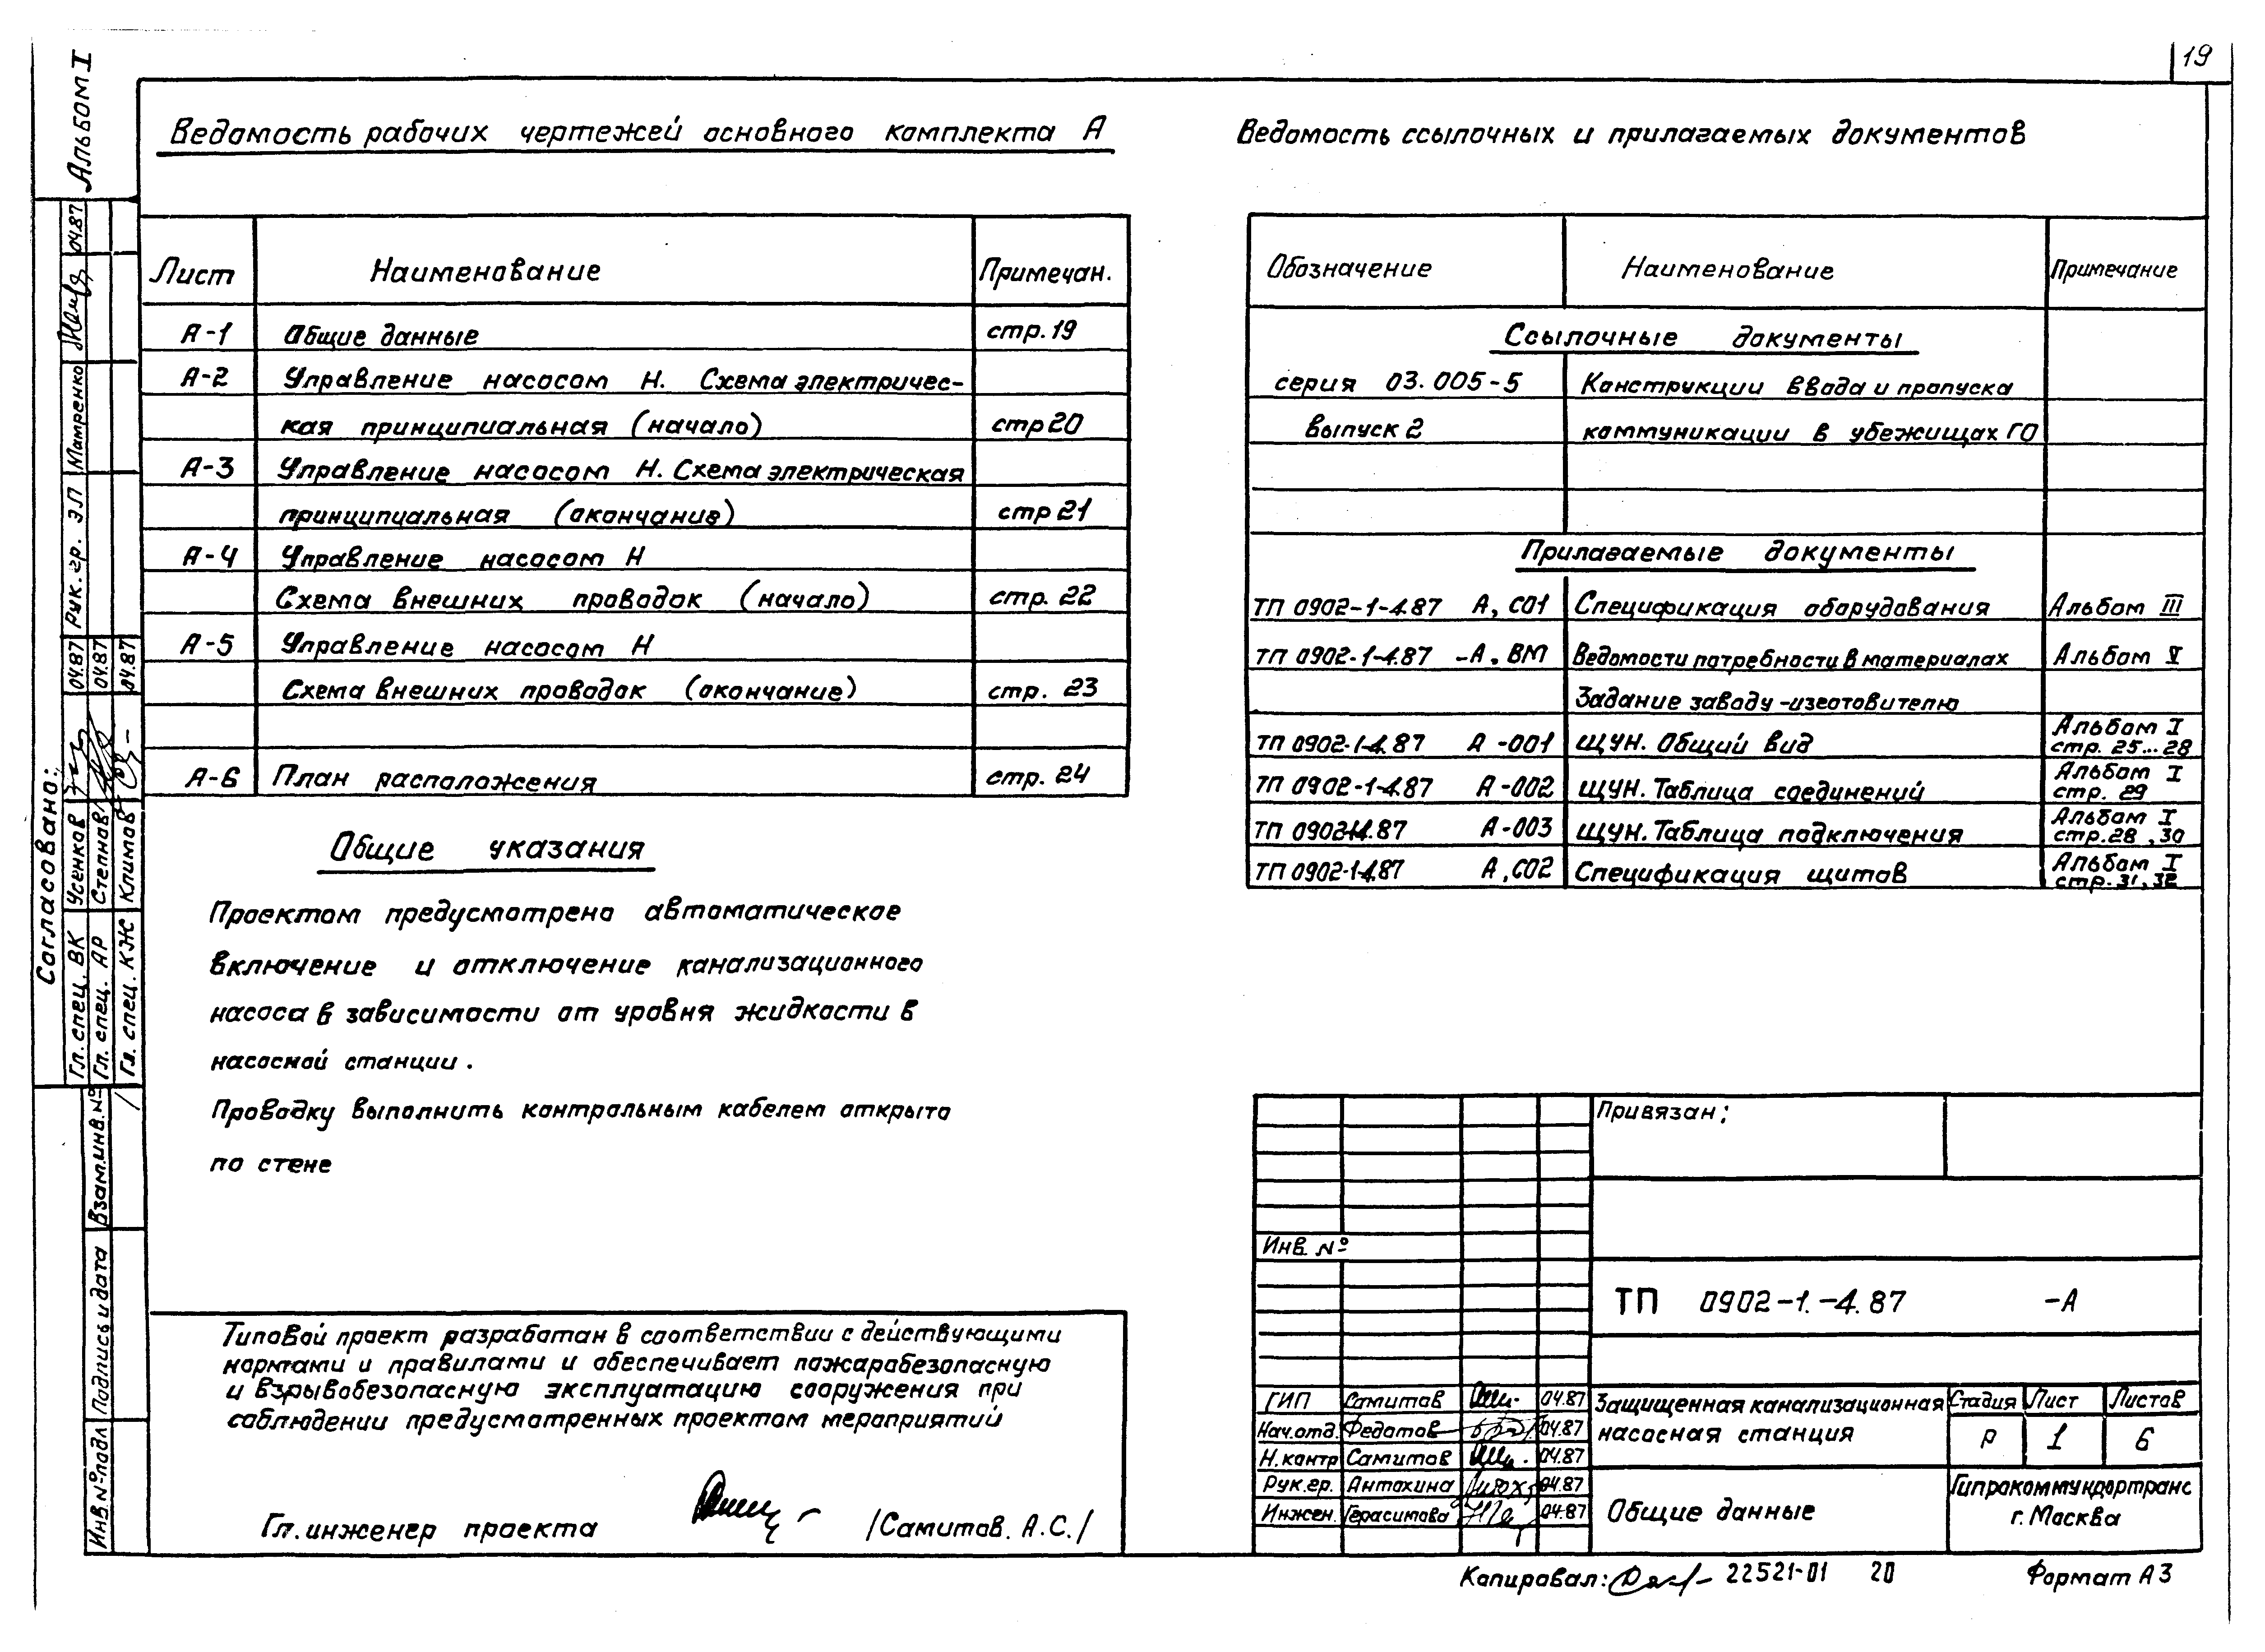 19
Альбом I
Ведомость рабочих чертежей основного комплекта А
Лист Наименование Примечан.
А-1 Общие данные стр.19
А-2 Управление насосом Н. Схема электричес-
кая принципиальная (начало) стр 20
А-3 Управление насосом Н. Схема электрическая
принципиальная (окончание) стр 21
А-4 Управление насосом Н
Схема внешних проводок (начало) стр. 22
А-5 Управление насосом Н
Схема внешних проводок (окончание) стр. 23
А-6 План расположения стр. 24
Общие указания
Проектом предусмотрено автоматическое
включение и отключение канализационного
насоса в зависимости от уровня жидкости в
насосной станции.
Проводку выполнить контрольным кабелем открыто
по стене
Типовой проект разработан в соответствии с действующими
нормами и правилами и обеспечивает пожаробезопасную
и взрывобезопасную эксплуатацию сооружения при
соблюдении предусмотренных проектом мероприятий
Гл. инженер проекта /Самитов. А.С./
Ведомость ссылочных и прилагаемых документов
Обозначение Наименование Примечание
Ссылочные документы
серия 03.005-5 Конструкции ввода и пропуска
выпуск 2 коммуникации в убежищах ГО
Прилагаемые документы
ТП 0902-1-4.87 А, СО1 Спецификация оборудования Альбом III
ТП 0902-1-4.87 -А. ВМ Ведомости потребности в материалах Альбом V
Задание заводу-изготовителю
ТП 0902-1-4.87 А-001 ЩУН. Общий вид Альбом I стр. 25...28
ТП 0902-1-4.87 А-002 ЩУН. Таблица соединений Альбом I стр. 29
ТП 0902-1-4.87 А-003 ЩУН. Таблица подключения Альбом I стр.28, 30
ТП 0902-1-4.87 А, СО2 Спецификация щитов Альбом I стр. 31, 32
Привязан:
Инв. №
ТП 0902-1.-4.87 -А
ГИП Самитов 04.87
Нач.отд. Федотов 04.87
Н.контр Самитов 04.87
Рук.гр. Антохина 04.87
Инжен. Герасимова 04.87
Защищенная канализационная
насосная станция
Стадия Лист Листов
Р 1 6
Общие данные
Гипрокоммундортранс
г. Москва
Копировал: 22521-01 20 Формат А3
Согласовано:
Гл. спец. ВК Усенков 04.87 Рук. гр. ЭП Матренко 04.87
Гл. спец. АР Степнов 04.87
Гл. спец. КЖ Климов 04.87
Взам.инв.№
Подпись и дата
Инв.№ подл